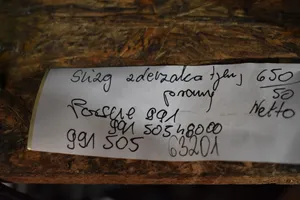 Ślizg zderzaka tylny 650
prawy 50
Netto
Porsche 991
991 505 480 00
991 505 63201